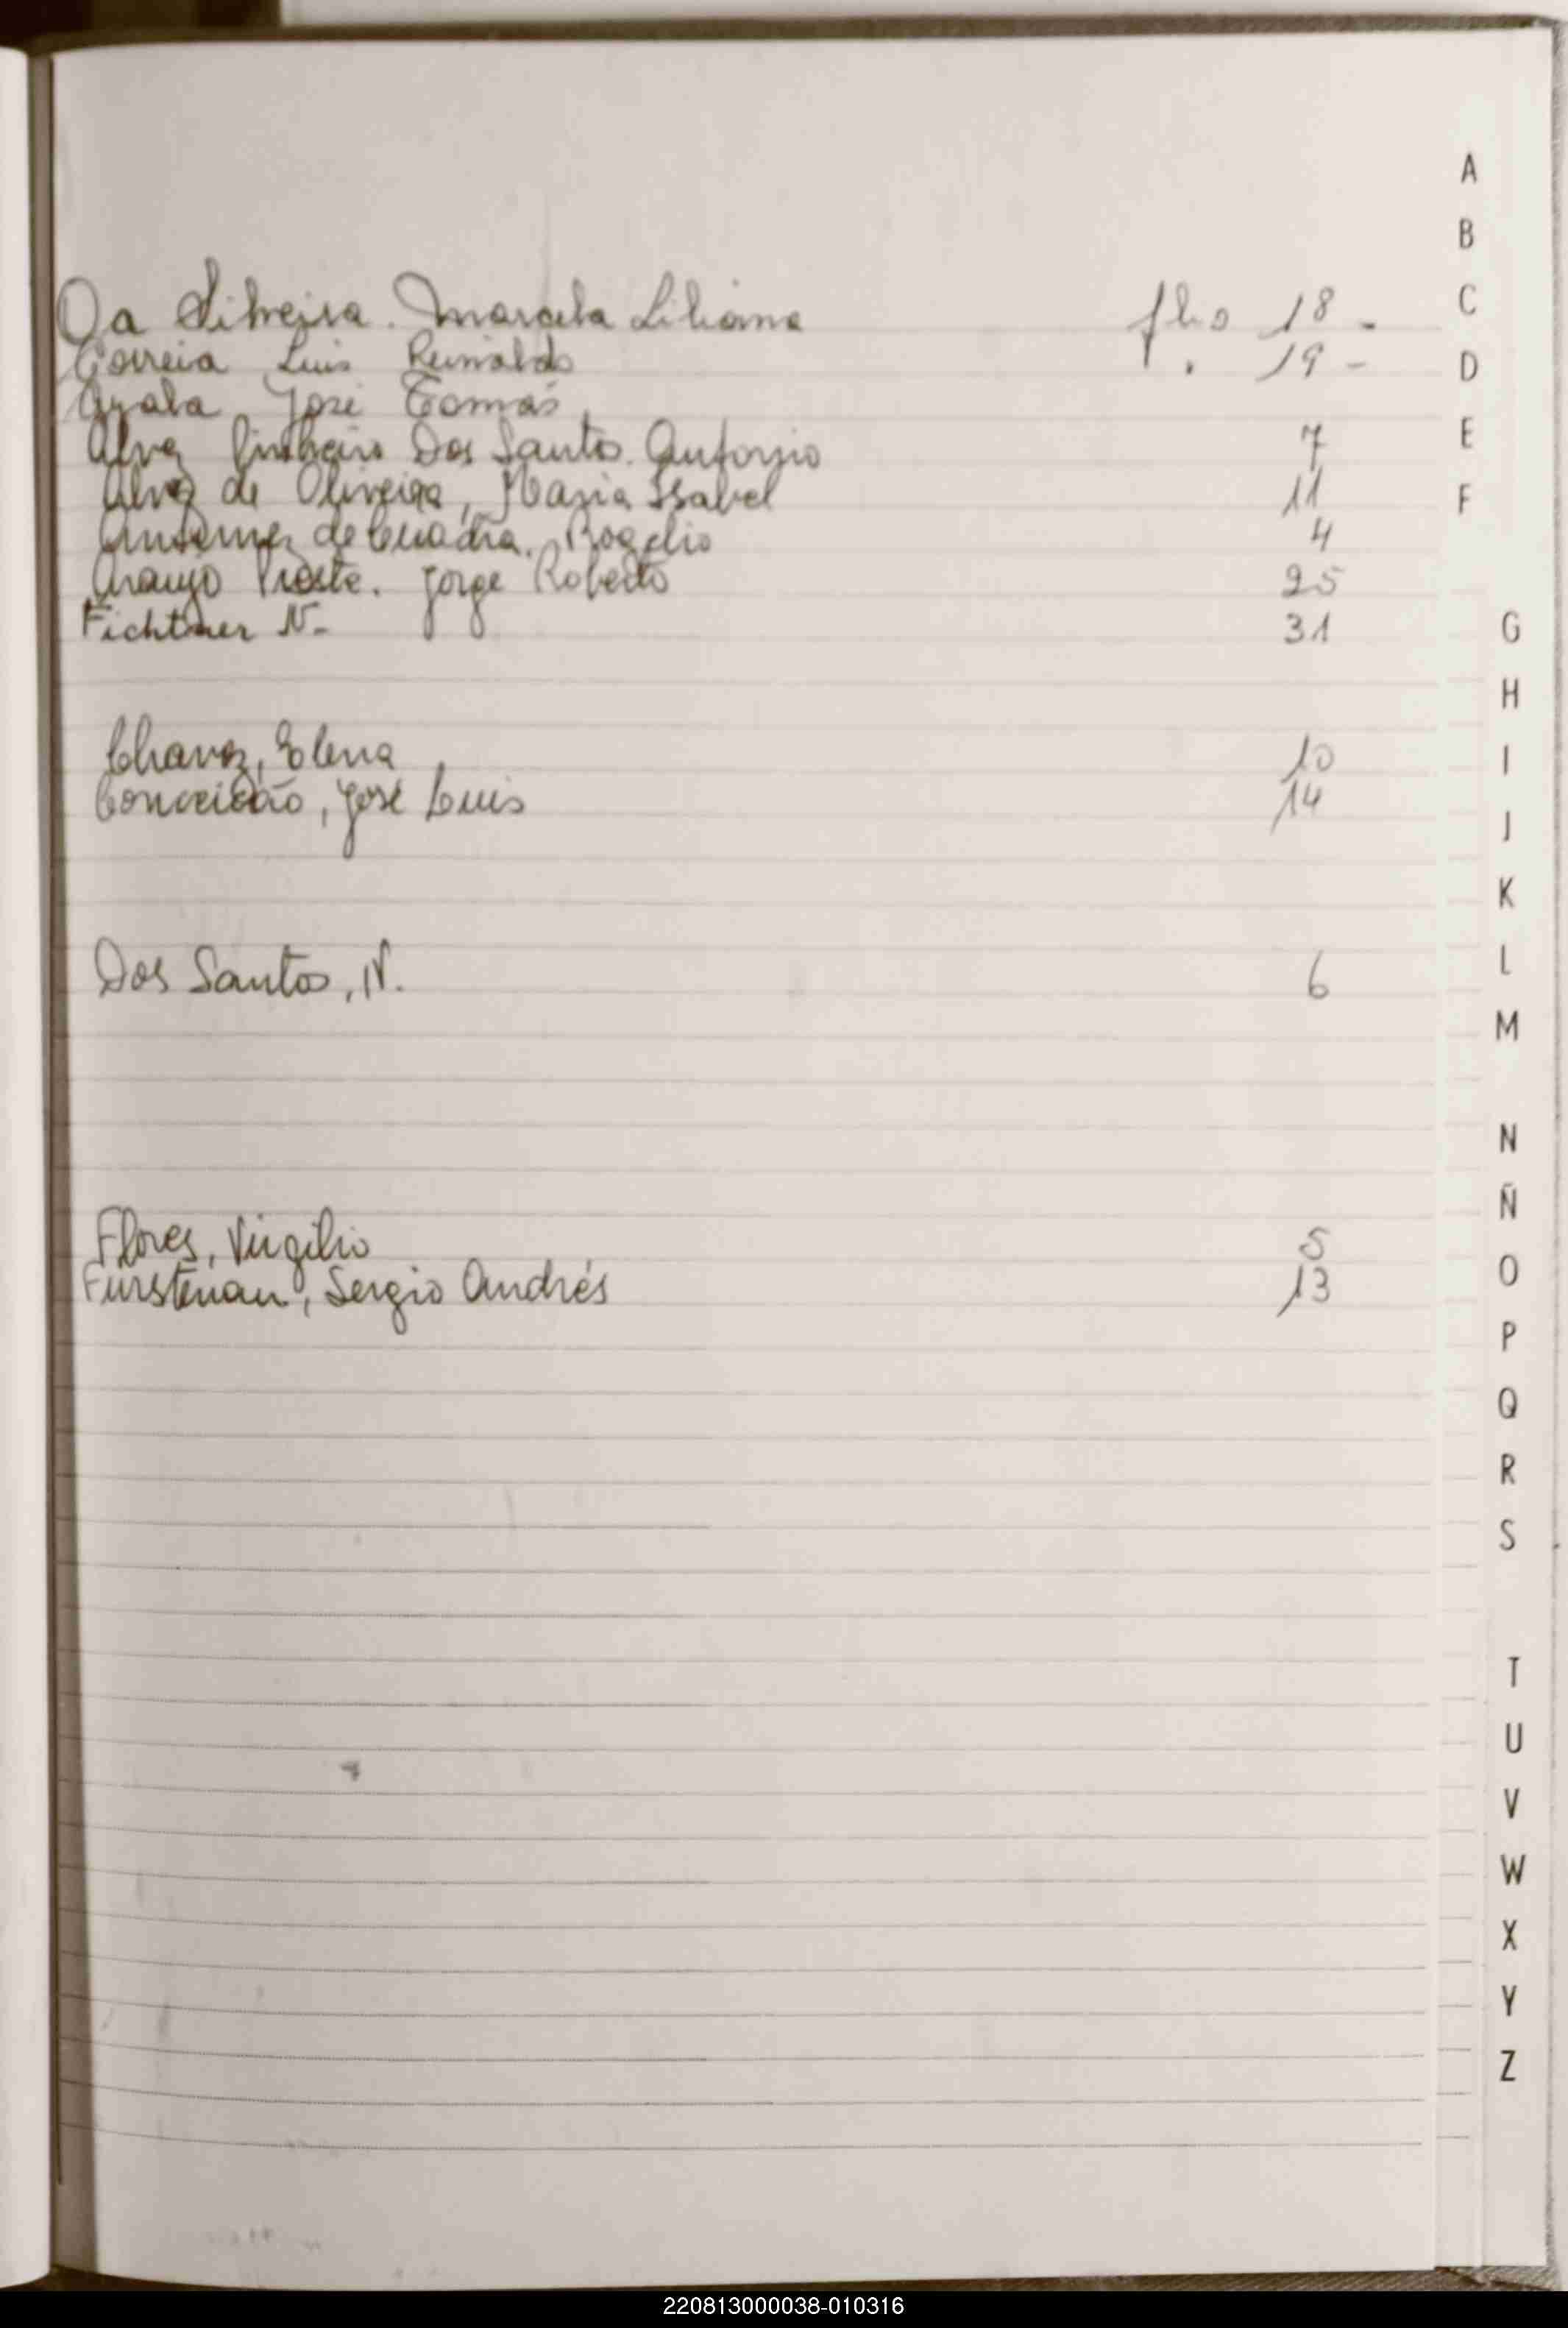 Da Silveira. Marcela Liliana flio 18 -
Correia Luis Reinaldo " 19 -
Ayala José Tomás
Alvez Pinheiro Dos Santos. Antonio 7
Alvez de Oliveira, Maria Isabel 11
de Cuadra. Rogelio 4
Araujo Preste. Jorge Roberto 25
Fichtner N- 31
Chavez, Elena 10
Conceicão, José Luis 14
Dos Santos, N. 6
Flores, Virgilio 5
Furstenau, Sergio Andrés 13
A
B
C
D
E
F
G
H
I
J
K
L
M
N
Ñ
O
P
Q
R
S
T
U
V
W
X
Y
Z
220813000038-010316